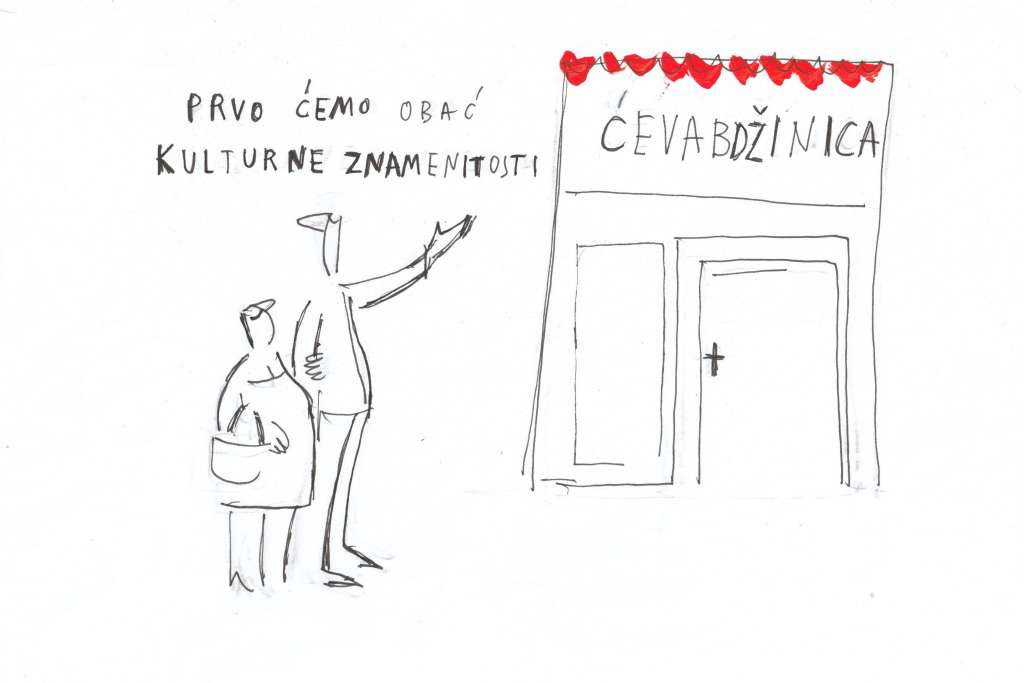 PRVO ĆEMO OBAĆ
KULTURNE ZNAMENITOSTI
ĆEVABDŽINICA